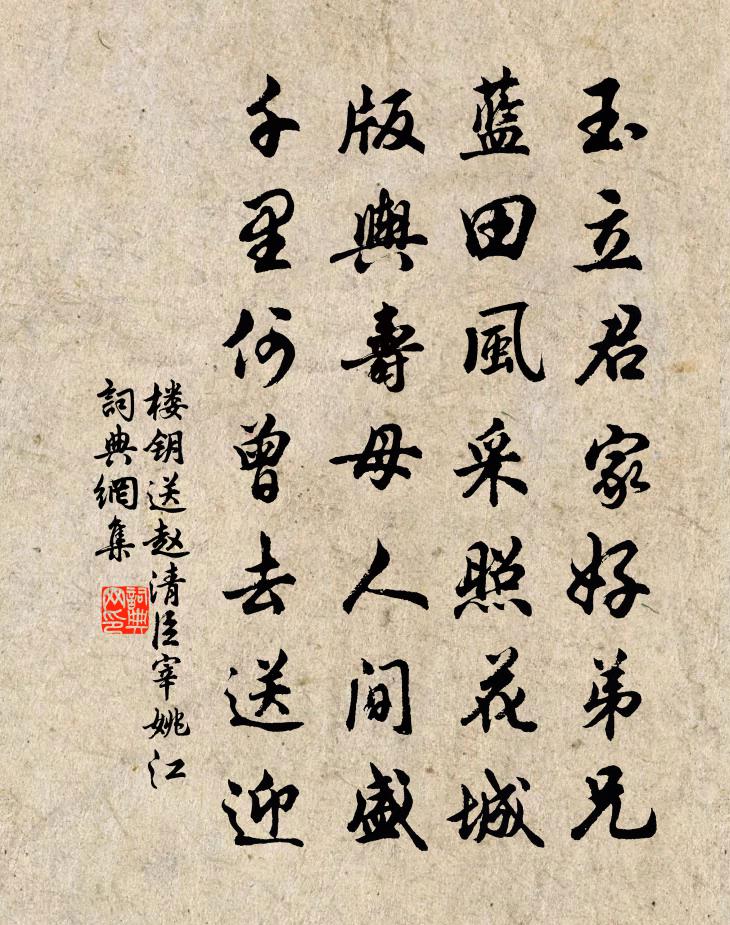 玉立君家好弟兄
藍田風采照花城
版輿壽母人间盛
千里何曾去送迎
楼钥送赵清臣宰姚江
詞典網集
詞典
网印